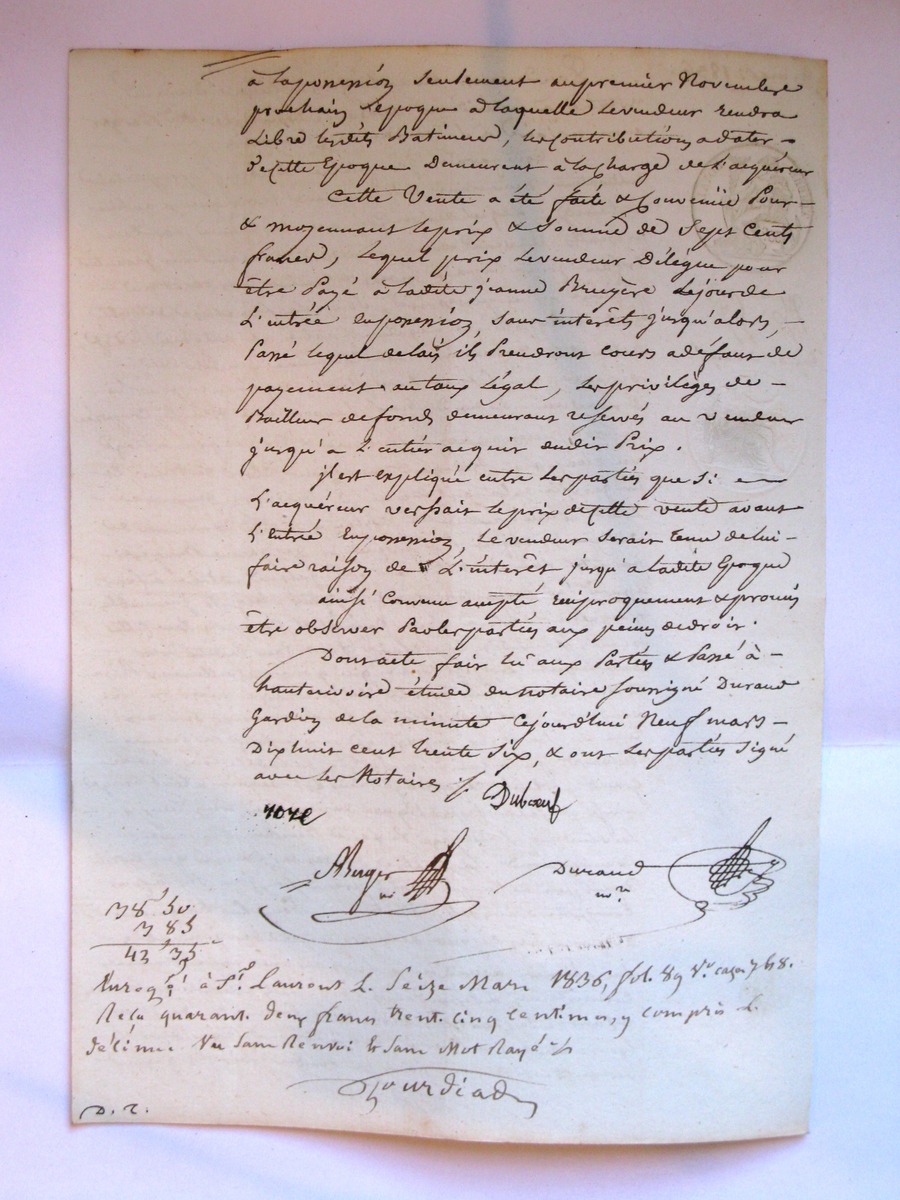 à la possession seulement au premier Novembre
prochain époque à laquelle le vendeur rendra
Libre lesdits Batimens, les Contributions à dater
de cette Epoque Demeurent à la Charge de L'acquéreur
Cette Vente a été faite & Convenüe Pour
& moyennant le prix & Somme de Sept Cents
francs, lequel prix le vendeur Délègue pour
être Payé à ladite jeanne Bruyère le jour de
L'entrée en possession, sans intérêts jusqu'alors,
Passé lequel delais ils Prendront cours à défaut de
payement au taux Légal, les privilèges de
Bailleur de fonds demeurans reservés au vendeur
jusqu'à L'entier acquit dudit Prix.
jl est expliqué entre les parties que Si
L'acquéreur versait le prix de cette vente avant
L'entrée en possession, le vendeur serait tenu de lui
faire raison de L'intérêt jusqu'à ladite Epoque
ainsi Convenu accepté réciproquement & promis
être observer Par les parties aux peines de droit.
Dont acte fait lu aux Parties & Passé à
hauterivoire étude du Notaire soussigné Durand
Gardien de la minute Cejourd'hui Neuf mars
Dix huit cent trente Six, & ont les parties Signé
avec les Notaires /.
Duboeuf
ABerger
nre
Durand
nre
38 50
3 85
42 35
Enregé à St. Laurent L. Seize Mars 1836, fol. 89 Vo. cases 7 & 8.
Reçu quarante deux francs trente cinq centimes, y compris L.
décime. Vu Sans Renvoi & Sans Mot Rayé
D. 2.